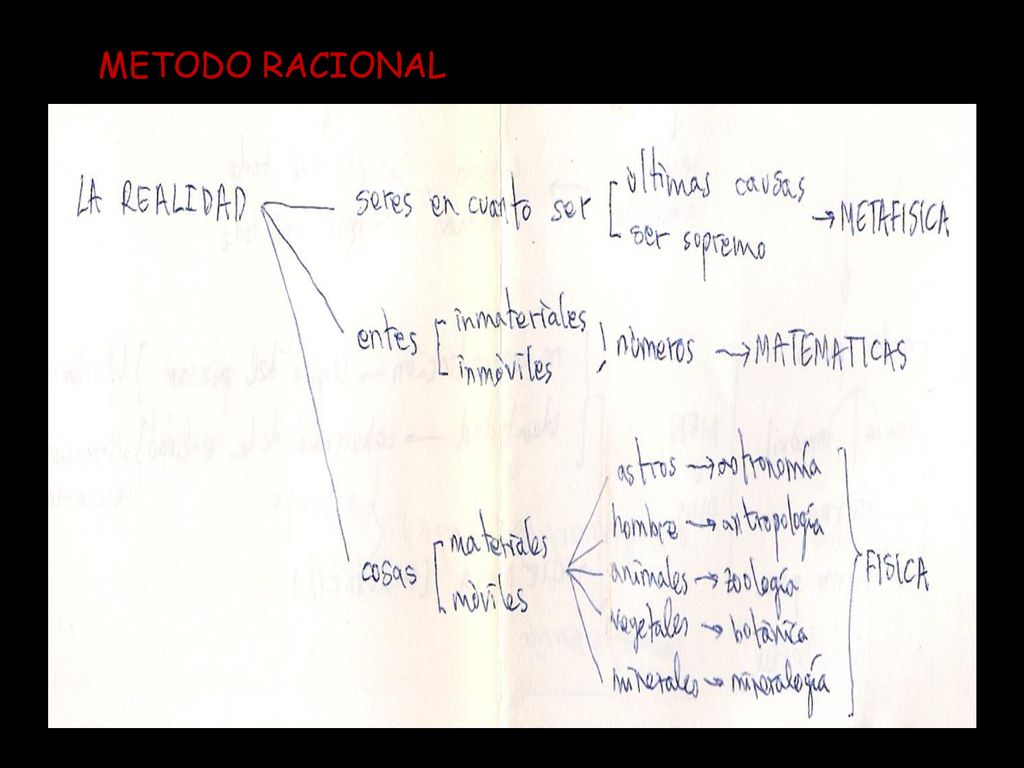 METODO RACIONAL
LA REALIDAD
seres en cuanto ser
últimas causas
ser supremo
→ METAFISICA
entes
inmateriales
inmóviles
números → MATEMATICAS
cosas
materiales
móviles
astros → astronomía
hombre → antropología
animales → zoología
vegetales → botánica
minerales → mineralogía
FISICA